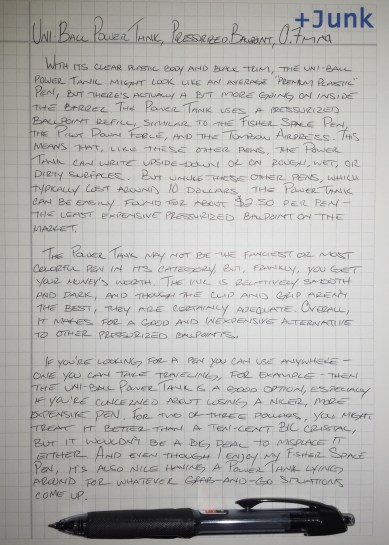 +Junk
Uni-Ball Power Tank, Pressurized Ballpoint, 0.7mm
With its clear plastic body and black trim, the Uni-Ball
Power Tank might look like an average "premium plastic"
pen, but there's actually a bit more going on inside
the barrel. The Power Tank uses a pressurized
ballpoint refill, similar to the Fisher Space Pen,
the Pilot Down Force, and the Tombow Airpress. This
means that, like these other pens, the Power
Tank can write upside-down or on rough, wet, or
dirty surfaces. But unlike these other pens, which
typically cost around 10 dollars, the Power Tank
can be easily found for about $2.50 per pen -
the least expensive pressurized ballpoint on the
market.
The Power Tank may not be the fanciest or most
colorful pen in its category, but, frankly, you get
your money's worth. The ink is relatively smooth
and dark, and though the clip and grip aren't
the best, they are certainly adequate. Overall,
it makes for a good and inexpensive alternative
to other pressurized ballpoints.
If you're looking for a pen you can use anywhere -
one you can take traveling, for example - then
the Uni-Ball Power Tank is a good option, especially
if you're concerned about losing a nicer, more
expensive pen. For two or three dollars, you might
treat it better than a ten-cent Bic Cristal,
but it wouldn't be a big deal to misplace it
either. And even though I enjoy my Fisher Space
Pen, it's also nice having a Power Tank lying
around for whatever grab-and-go situations
come up.